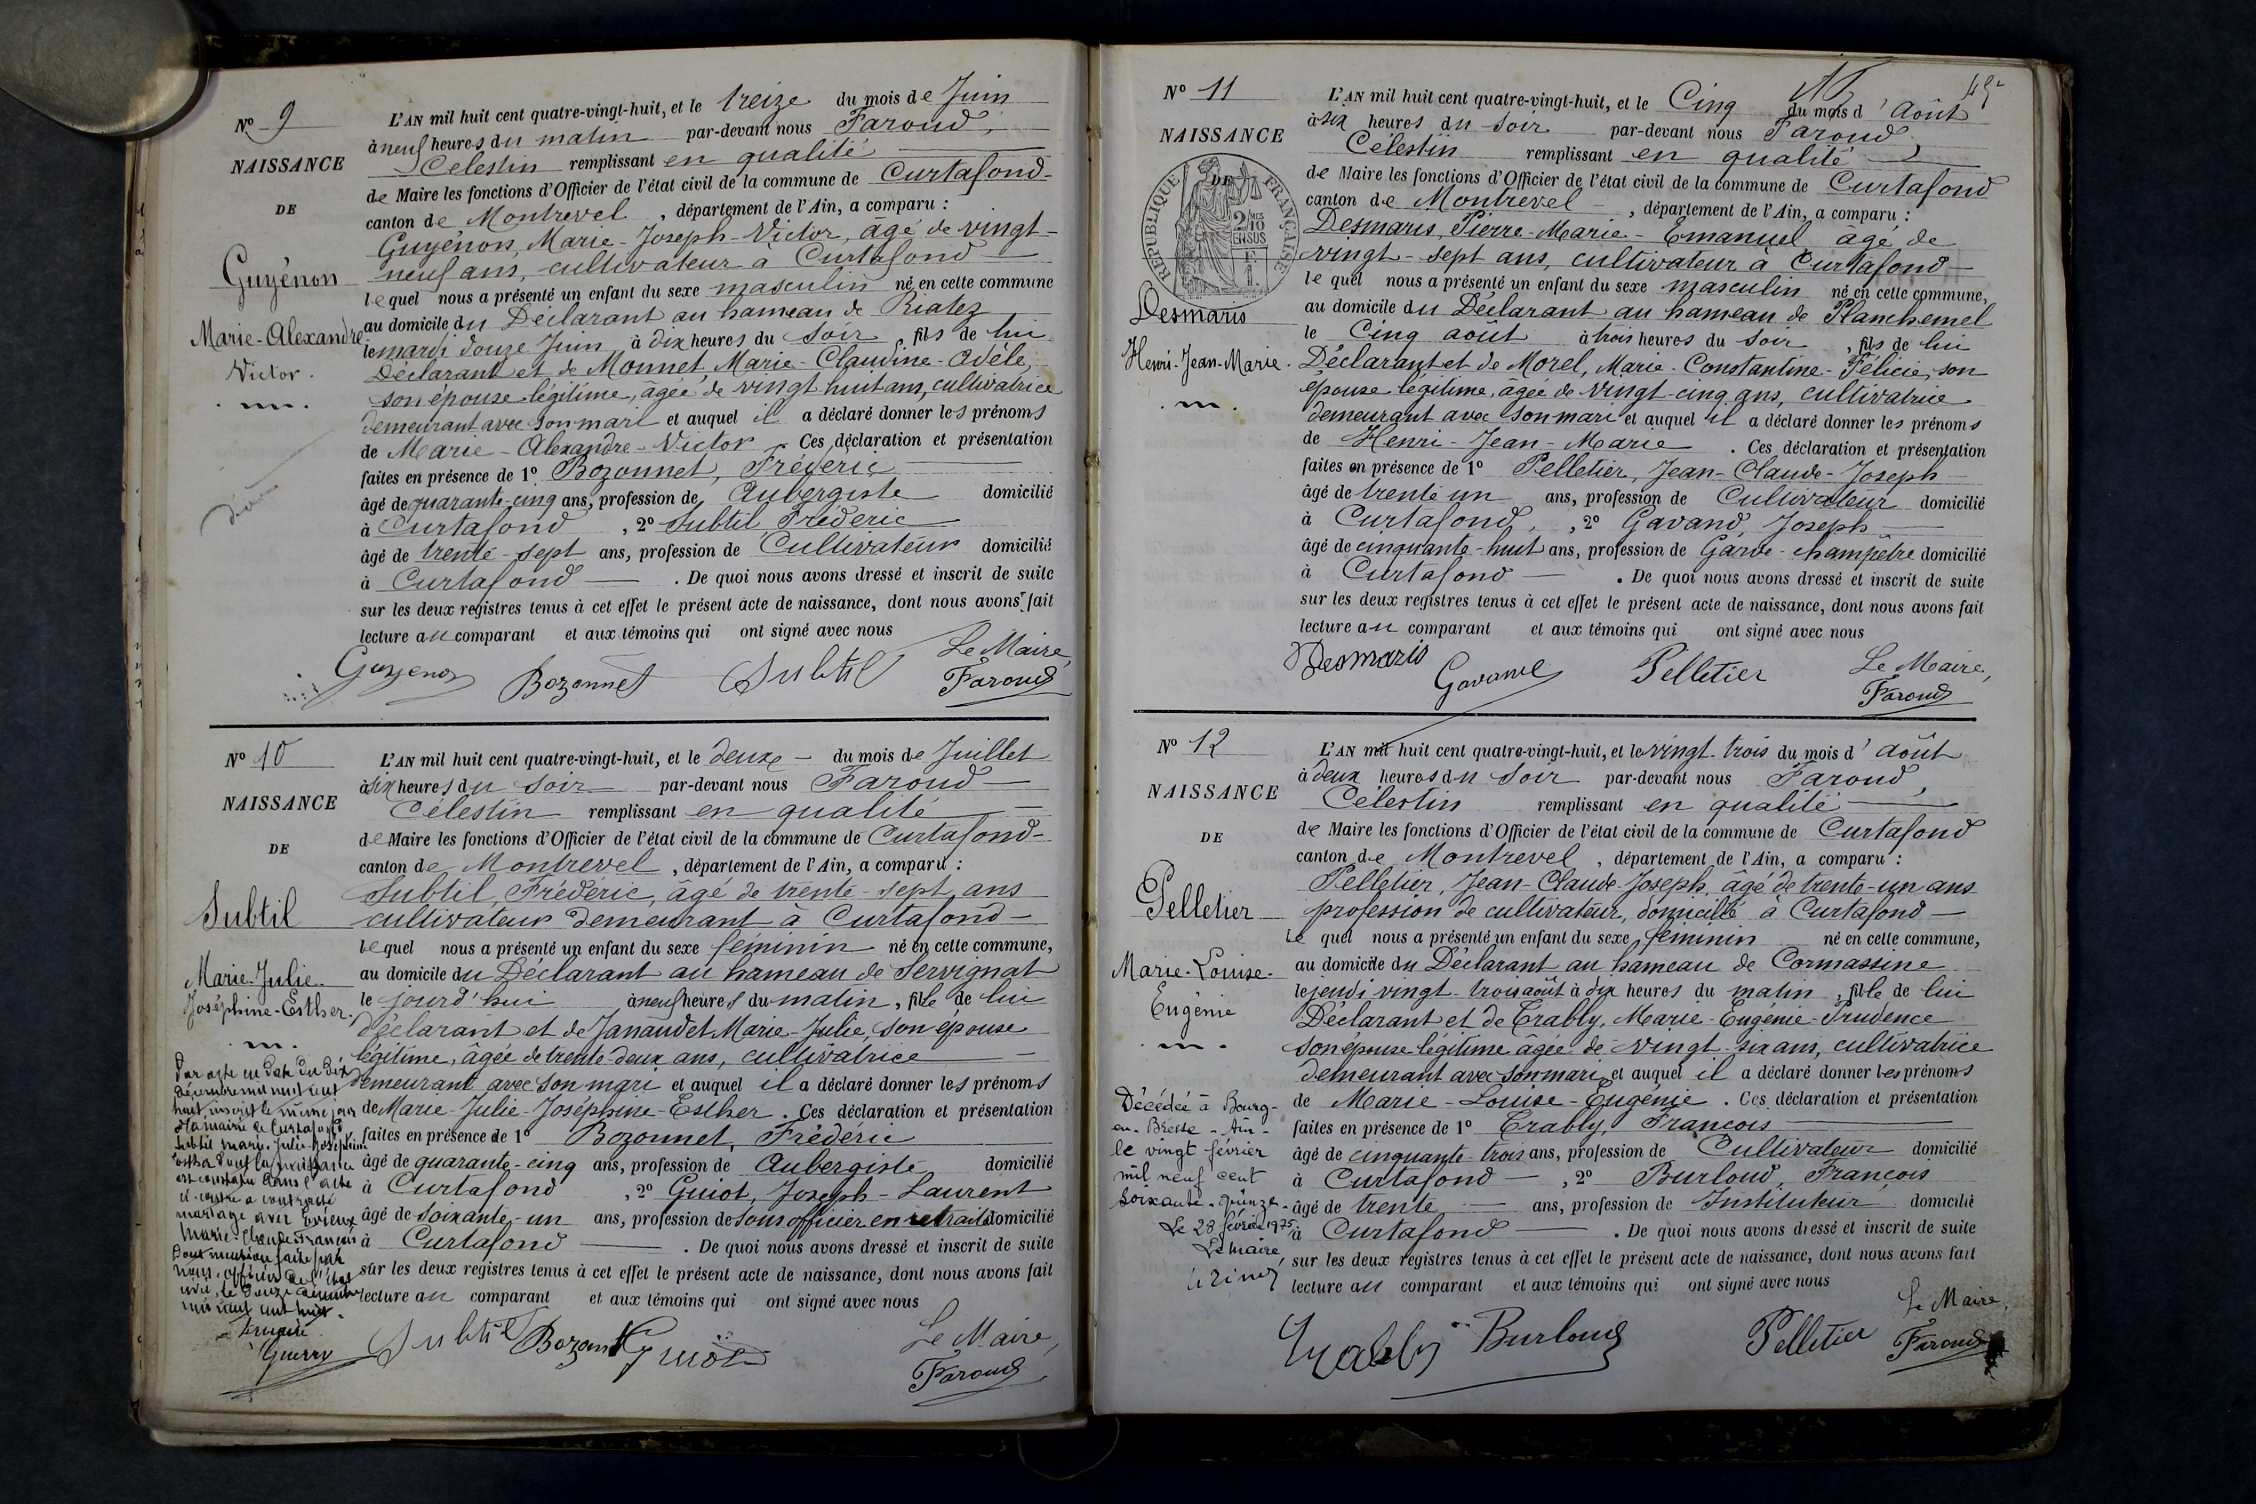 N° 9
NAISSANCE
DE
Guyénon
Marie-Alexandre
Victor.
L'AN mil huit cent quatre-vingt-huit, et le treize du mois de Juin
à neuf heures du matin par-devant nous Faroud,
Célestin remplissant en qualité
de Maire les fonctions d'Officier de l'état civil de la commune de Curtafond
canton de Montrevel, département de l'Ain, a comparu :
Guyénon, Marie-Joseph-Victor, âgé de vingt-
neuf ans, cultivateur à Curtafond
lequel nous a présenté un enfant du sexe masculin né en cette commune
au domicile du Déclarant au hameau de Riatez
le mardi douze Juin à dix heures du soir, fils de lui
Déclarant et de Monnet, Marie-Claudine-Adèle,
son épouse légitime, âgée de vingt huit ans, cultivatrice
demeurant avec son mari et auquel il a déclaré donner les prénoms
de Marie-Alexandre-Victor. Ces déclaration et présentation
faites en présence de 1° Bozonnet, Fréderic
âgé de quarante-cinq ans, profession de Aubergiste domicilié
à Curtafond, 2° Subtil, Fréderic
âgé de trente-sept ans, profession de Cultivateur domicilié
à Curtafond. De quoi nous avons dressé et inscrit de suite
sur les deux registres tenus à cet effet le présent acte de naissance, dont nous avons fait
lecture au comparant et aux témoins qui ont signé avec nous
Guyenon Bozonnet Subtil Le Maire,
Faroud
N° 10
NAISSANCE
DE
Subtil
Marie-Julie-
Joséphine-Esther.
Par acte en date du dix
décembre mil neuf cent
huit, inscrit le même jour
à la mairie de Curtafond,
Subtil Marie-Julie-Joséphine
Esther dont la naissance
est constatée dans l'acte
ci-contre a contracté
mariage avec
Marie-Claude-François
Dont mention faite par
nous, officier de l'état
civil, le douze décembre
mil neuf cent huit.
Guerry
L'AN mil huit cent quatre-vingt-huit, et le deux du mois de Juillet
à six heures du soir par-devant nous Faroud
Célestin remplissant en qualité
de Maire les fonctions d'Officier de l'état civil de la commune de Curtafond
canton de Montrevel, département de l'Ain, a comparu :
Subtil, Fréderic, âgé de trente-sept ans
cultivateur demeurant à Curtafond
lequel nous a présenté un enfant du sexe féminin né en cette commune,
au domicile du Déclarant au hameau de Servignat
le jourd'hui à neuf heures du matin, fille de lui
déclarant et de Janaudet, Marie-Julie, son épouse
légitime, âgée de trente-deux ans, cultivatrice
demeurant avec son mari et auquel il a déclaré donner les prénoms
de Marie-Julie-Joséphine-Esther. Ces déclaration et présentation
faites en présence de 1° Bozonnet, Fréderic
âgé de quarante-cinq ans, profession de Aubergiste domicilié
à Curtafond, 2° Guiot, Joseph-Laurent
âgé de soixante-un ans, profession de sous officier en retraite domicilié
à Curtafond. De quoi nous avons dressé et inscrit de suite
sur les deux registres tenus à cet effet le présent acte de naissance, dont nous avons fait
lecture au comparant et aux témoins qui ont signé avec nous
Subtil Bozonnet Guiot Le Maire,
Faroud
N° 11
NAISSANCE
DE
RÉPUBLIQUE FRANÇAISE
2/10MES
EN SUS
Desmaris
Henri-Jean-Marie.
L'AN mil huit cent quatre-vingt-huit, et le Cinq du mois d'Août
à six heures du soir par-devant nous Faroud,
Célestin remplissant en qualité
de Maire les fonctions d'Officier de l'état civil de la commune de Curtafond
canton de Montrevel, département de l'Ain, a comparu :
Desmaris, Pierre-Marie-Emanuel, âgé de
vingt-sept ans, cultivateur à Curtafond
lequel nous a présenté un enfant du sexe masculin né en cette commune,
au domicile du Déclarant au hameau de Planchemel
le Cinq août à trois heures du soir, fils de lui
Déclarant et de Morel, Marie-Constantine-Félicie, son
épouse légitime, âgée de vingt-cinq ans, cultivatrice
demeurant avec son mari et auquel il a déclaré donner les prénoms
de Henri-Jean-Marie. Ces déclaration et présentation
faites en présence de 1° Pelletier, Jean-Claude-Joseph
âgé de trente un ans, profession de Cultivateur domicilié
à Curtafond, 2° Gavand, Joseph
âgé de cinquante-huit ans, profession de Garde-champêtre domicilié
à Curtafond. De quoi nous avons dressé et inscrit de suite
sur les deux registres tenus à cet effet le présent acte de naissance, dont nous avons fait
lecture au comparant et aux témoins qui ont signé avec nous
Desmaris Gavand Pelletier Le Maire,
Faroud
N° 12
NAISSANCE
DE
Pelletier
Marie-Louise-
Eugénie
Décédée à Bourg-
en-Bresse-Ain-
le vingt février
mil neuf cent
soixante-quinze-
Le 28 février 1975
Le maire
L'AN mil huit cent quatre-vingt-huit, et le vingt-trois du mois d'août
à deux heures du soir par-devant nous Faroud,
Célestin remplissant en qualité
de Maire les fonctions d'Officier de l'état civil de la commune de Curtafond
canton de Montrevel, département de l'Ain, a comparu :
Pelletier, Jean-Claude-Joseph, âgé de trente-un ans
profession de cultivateur, domicilié à Curtafond
lequel nous a présenté un enfant du sexe féminin né en cette commune,
au domicile du Déclarant au hameau de Cormassine
le jeudi vingt-trois août à dix heures du matin, fille de lui
Déclarant et de Crably, Marie-Eugénie-Prudence
son épouse légitime âgée de vingt-six ans, cultivatrice
demeurant avec son mari et auquel il a déclaré donner les prénoms
de Marie-Louise-Eugénie. Ces déclaration et présentation
faites en présence de 1° Crably, François
âgé de cinquante-trois ans, profession de Cultivateur domicilié
à Curtafond, 2° Burloud, François
âgé de trente ans, profession de Instituteur domicilié
à Curtafond. De quoi nous avons dressé et inscrit de suite
sur les deux registres tenus à cet effet le présent acte de naissance, dont nous avons fait
lecture au comparant et aux témoins qui ont signé avec nous
Crably Burloud Pelletier Le Maire,
Faroud